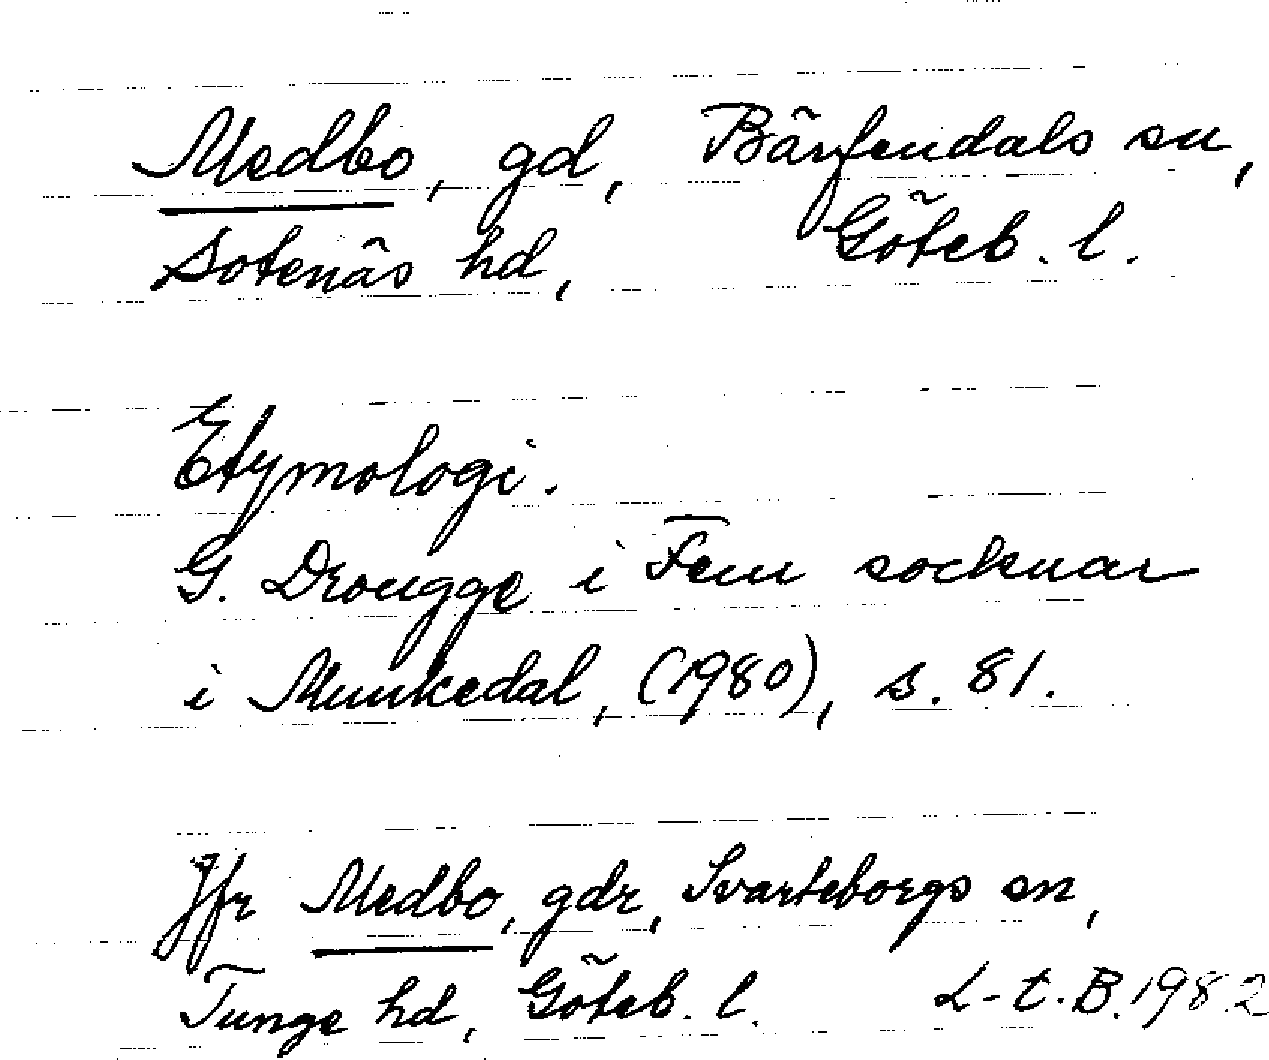 Medbo, gd, Bärfendals sn,
Sotenäs hd, Göteb. l.
Etymologi.
G. Drougge i Fem socknar
i Munkedal, (1980), s. 81.
Jfr Medbo, gdr, Svarteborgs sn,
Tunge hd, Göteb. l. L-t. B. 1982